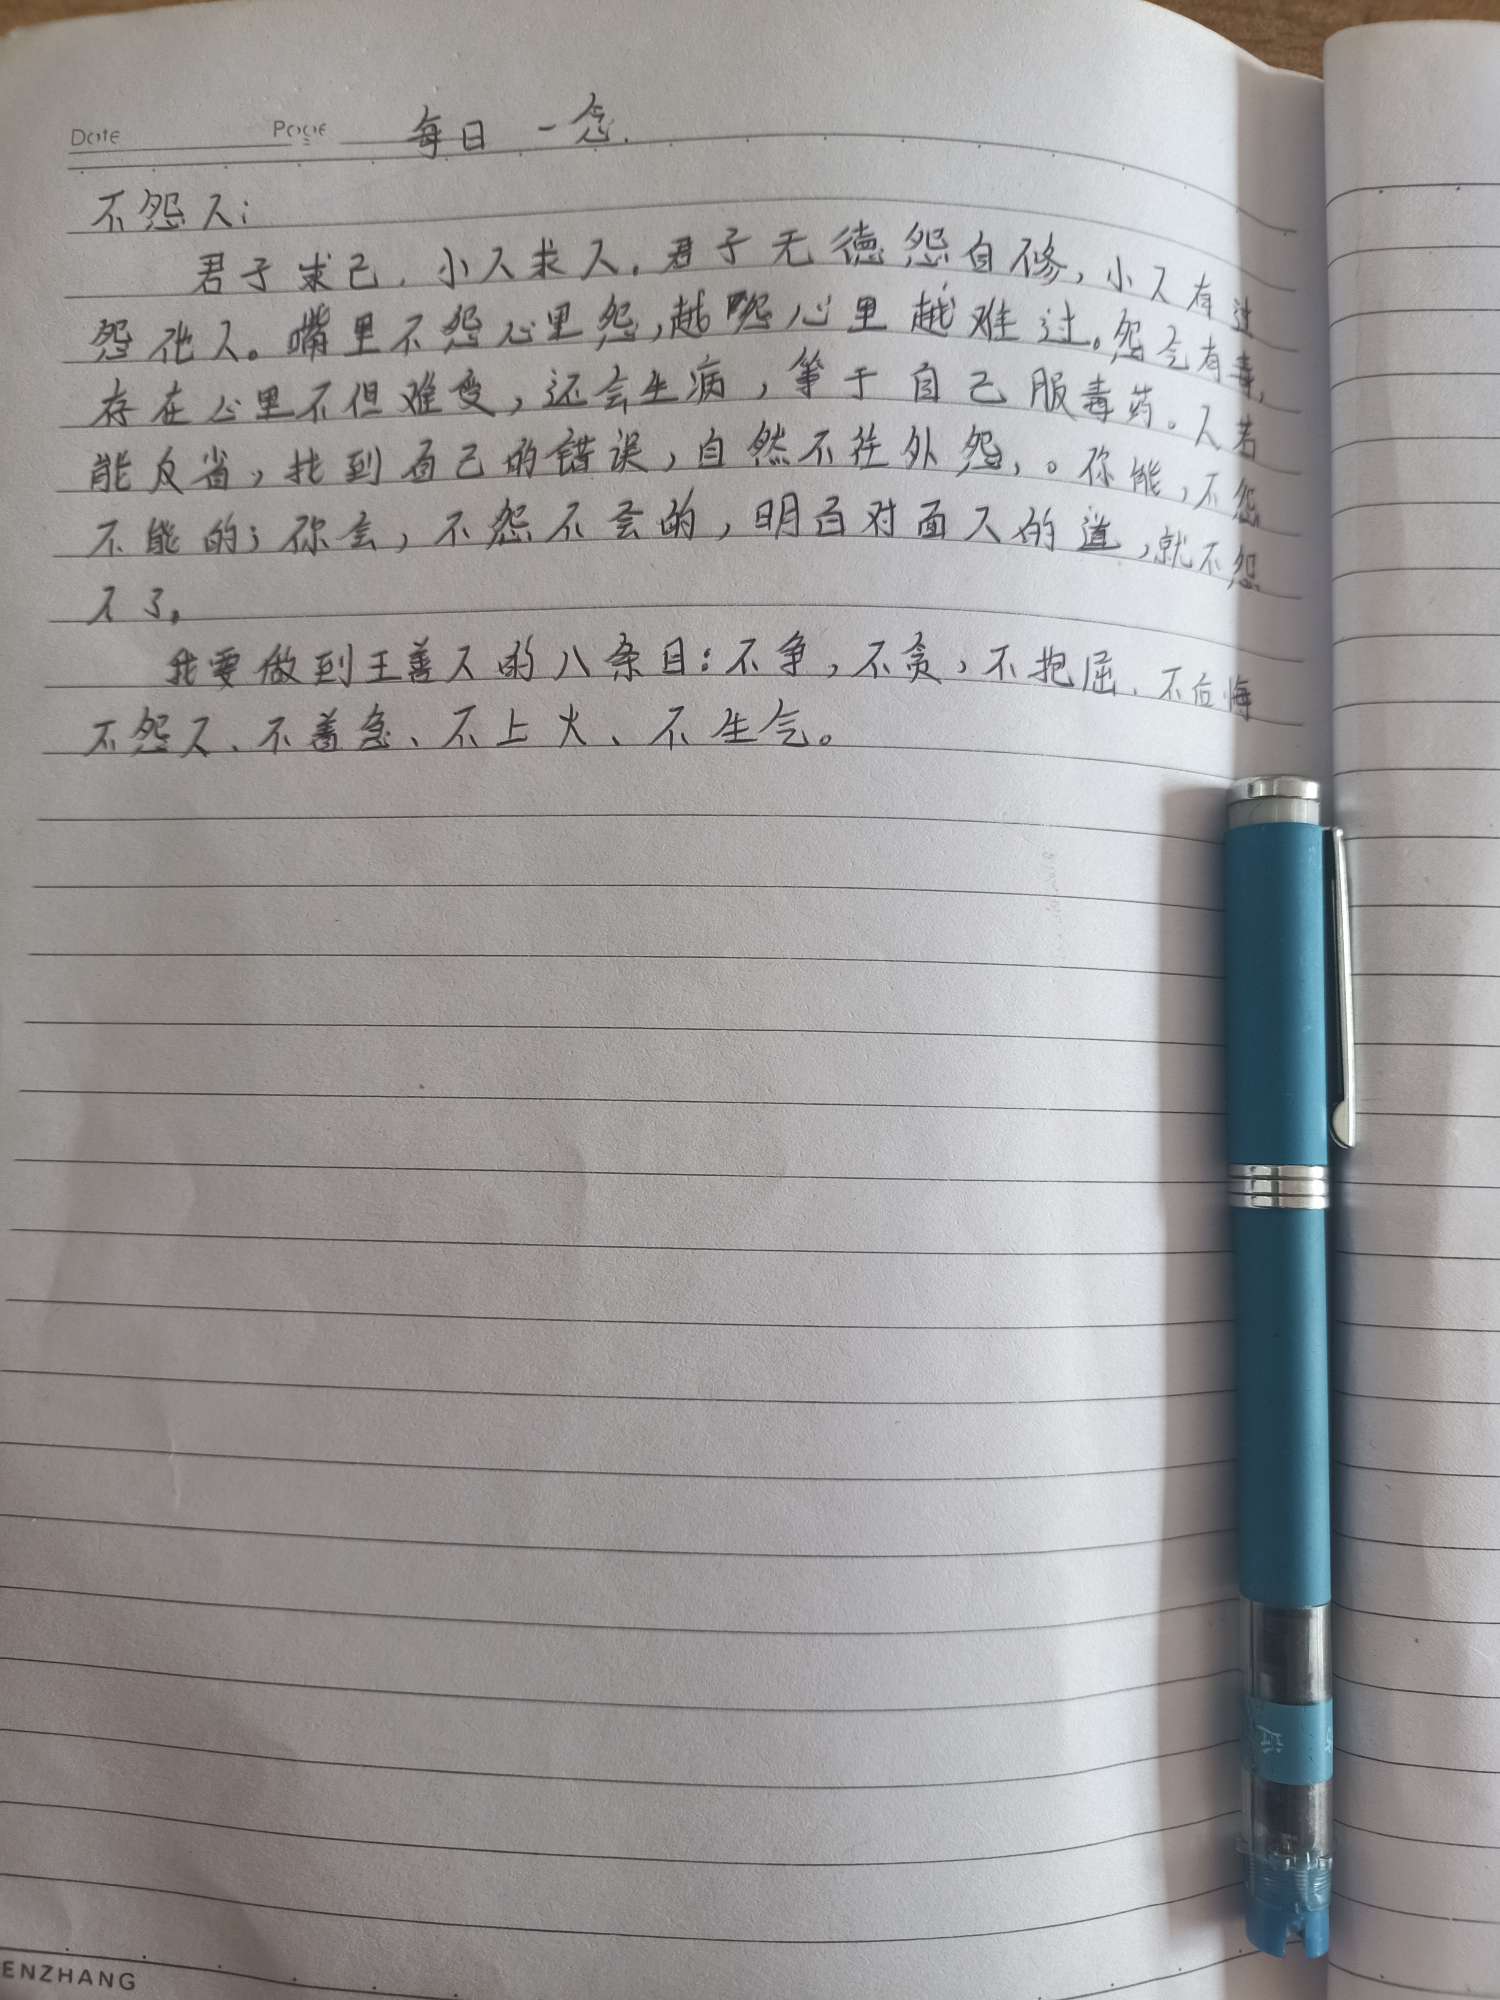 Date Page 每日一念.
不怨人:
君子求己.小人求人.君子无德怨自修,小人有过
怨他人。嘴里不怨心里怨,越怨心里越难过。怨气有毒,
存在心里不但难受,还会生病,等于自己服毒药。人若
能反省,找到自己的错误,自然不往外怨,。你能,不怨
不能的;你会,不怨不会的,明白对面人的道,就不怨
人了。
我要做到王善人的八条目:不争,不贪,不抱屈、不后悔
不怨人、不着急、不上火、不生气。
ENZHANG